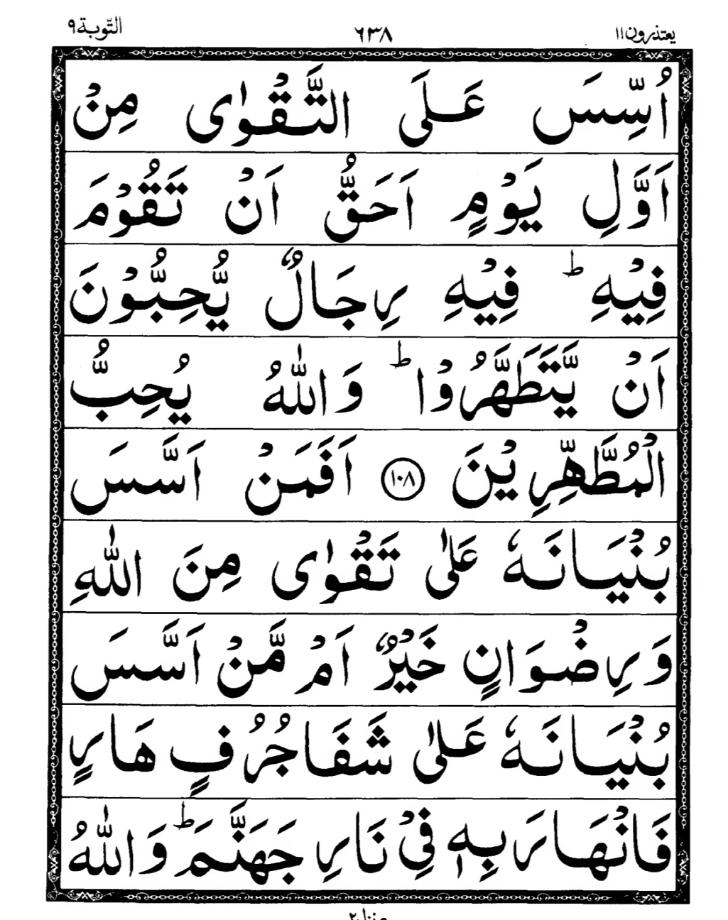 يعتذرون۱۱ ۶۳۸ التّوبة۹
اُسِّسَ عَلَى التَّقْوٰى مِنْ
اَوَّلِ يَوْمٍ اَحَقُّ اَنْ تَقُوْمَ
فِيْهِ ؕ فِيْهِ رِجَالٌ يُّحِبُّوْنَ
اَنْ يَّتَطَهَّرُوْا ؕ وَاللّٰهُ يُحِبُّ
الْمُطَّهِّرِيْنَ ﴿۱۰۸﴾ اَفَمَنْ اَسَّسَ
بُنْيَانَهٗ عَلٰى تَقْوٰى مِنَ اللّٰهِ
وَرِضْوَانٍ خَيْرٌ اَمْ مَّنْ اَسَّسَ
بُنْيَانَهٗ عَلٰى شَفَا جُرُفٍ هَارٍ
فَانْهَارَ بِهٖ فِيْ نَارِ جَهَنَّمَ ؕ وَاللّٰهُ